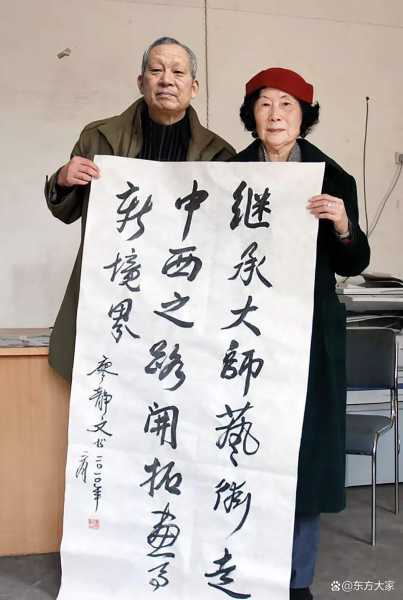 继承大師藝術走
中西之路開拓畫马
新境界
廖静文书二〇一〇年
@东方大家